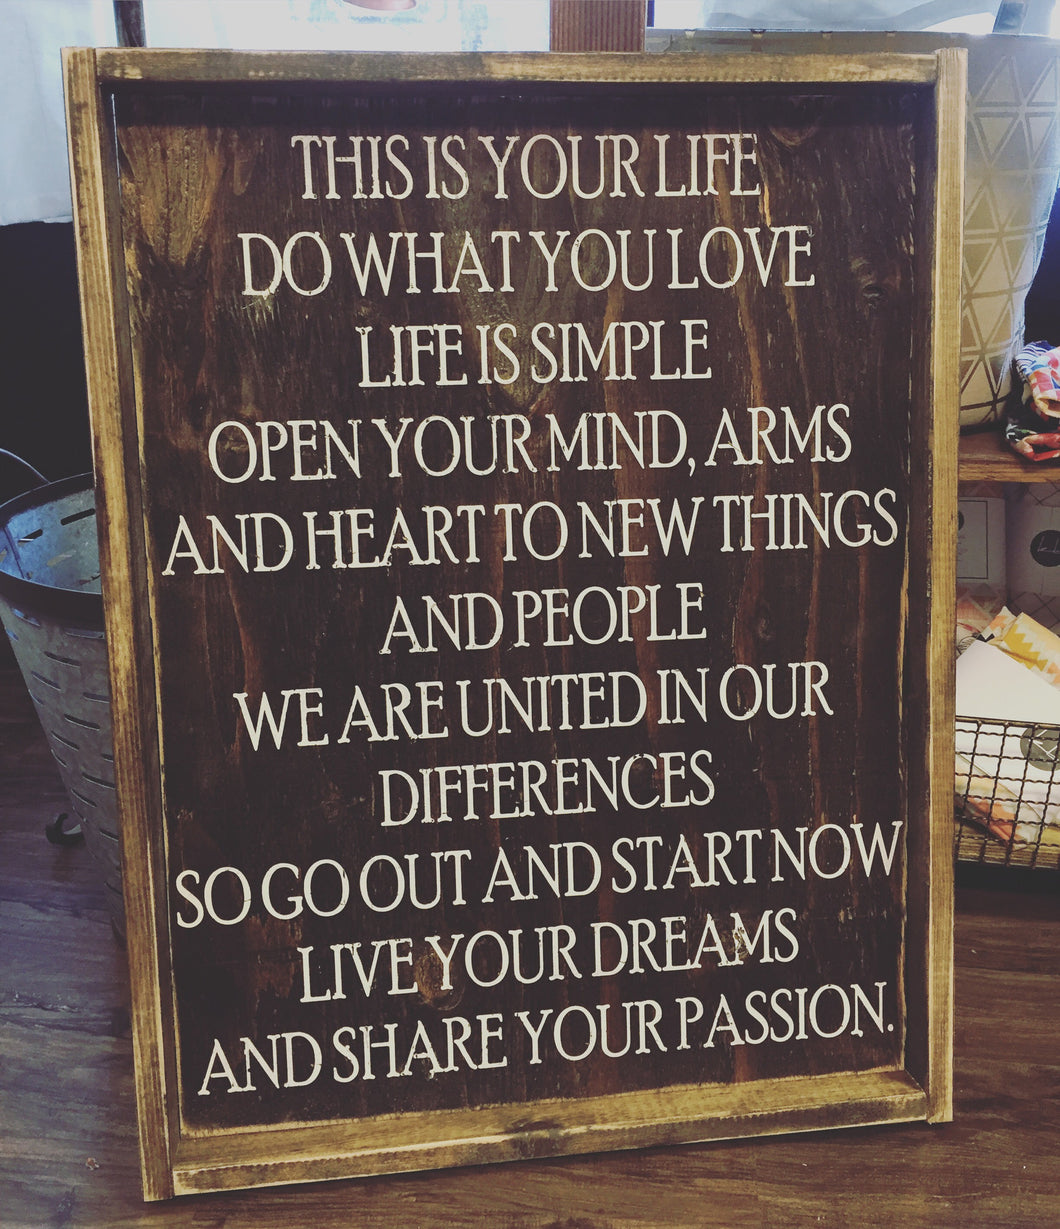 THIS IS YOUR LIFE
DO WHAT YOU LOVE
LIFE IS SIMPLE
OPEN YOUR MIND, ARMS
AND HEART TO NEW THINGS
AND PEOPLE
WE ARE UNITED IN OUR
DIFFERENCES
SO GO OUT AND START NOW
LIVE YOUR DREAMS
AND SHARE YOUR PASSION.